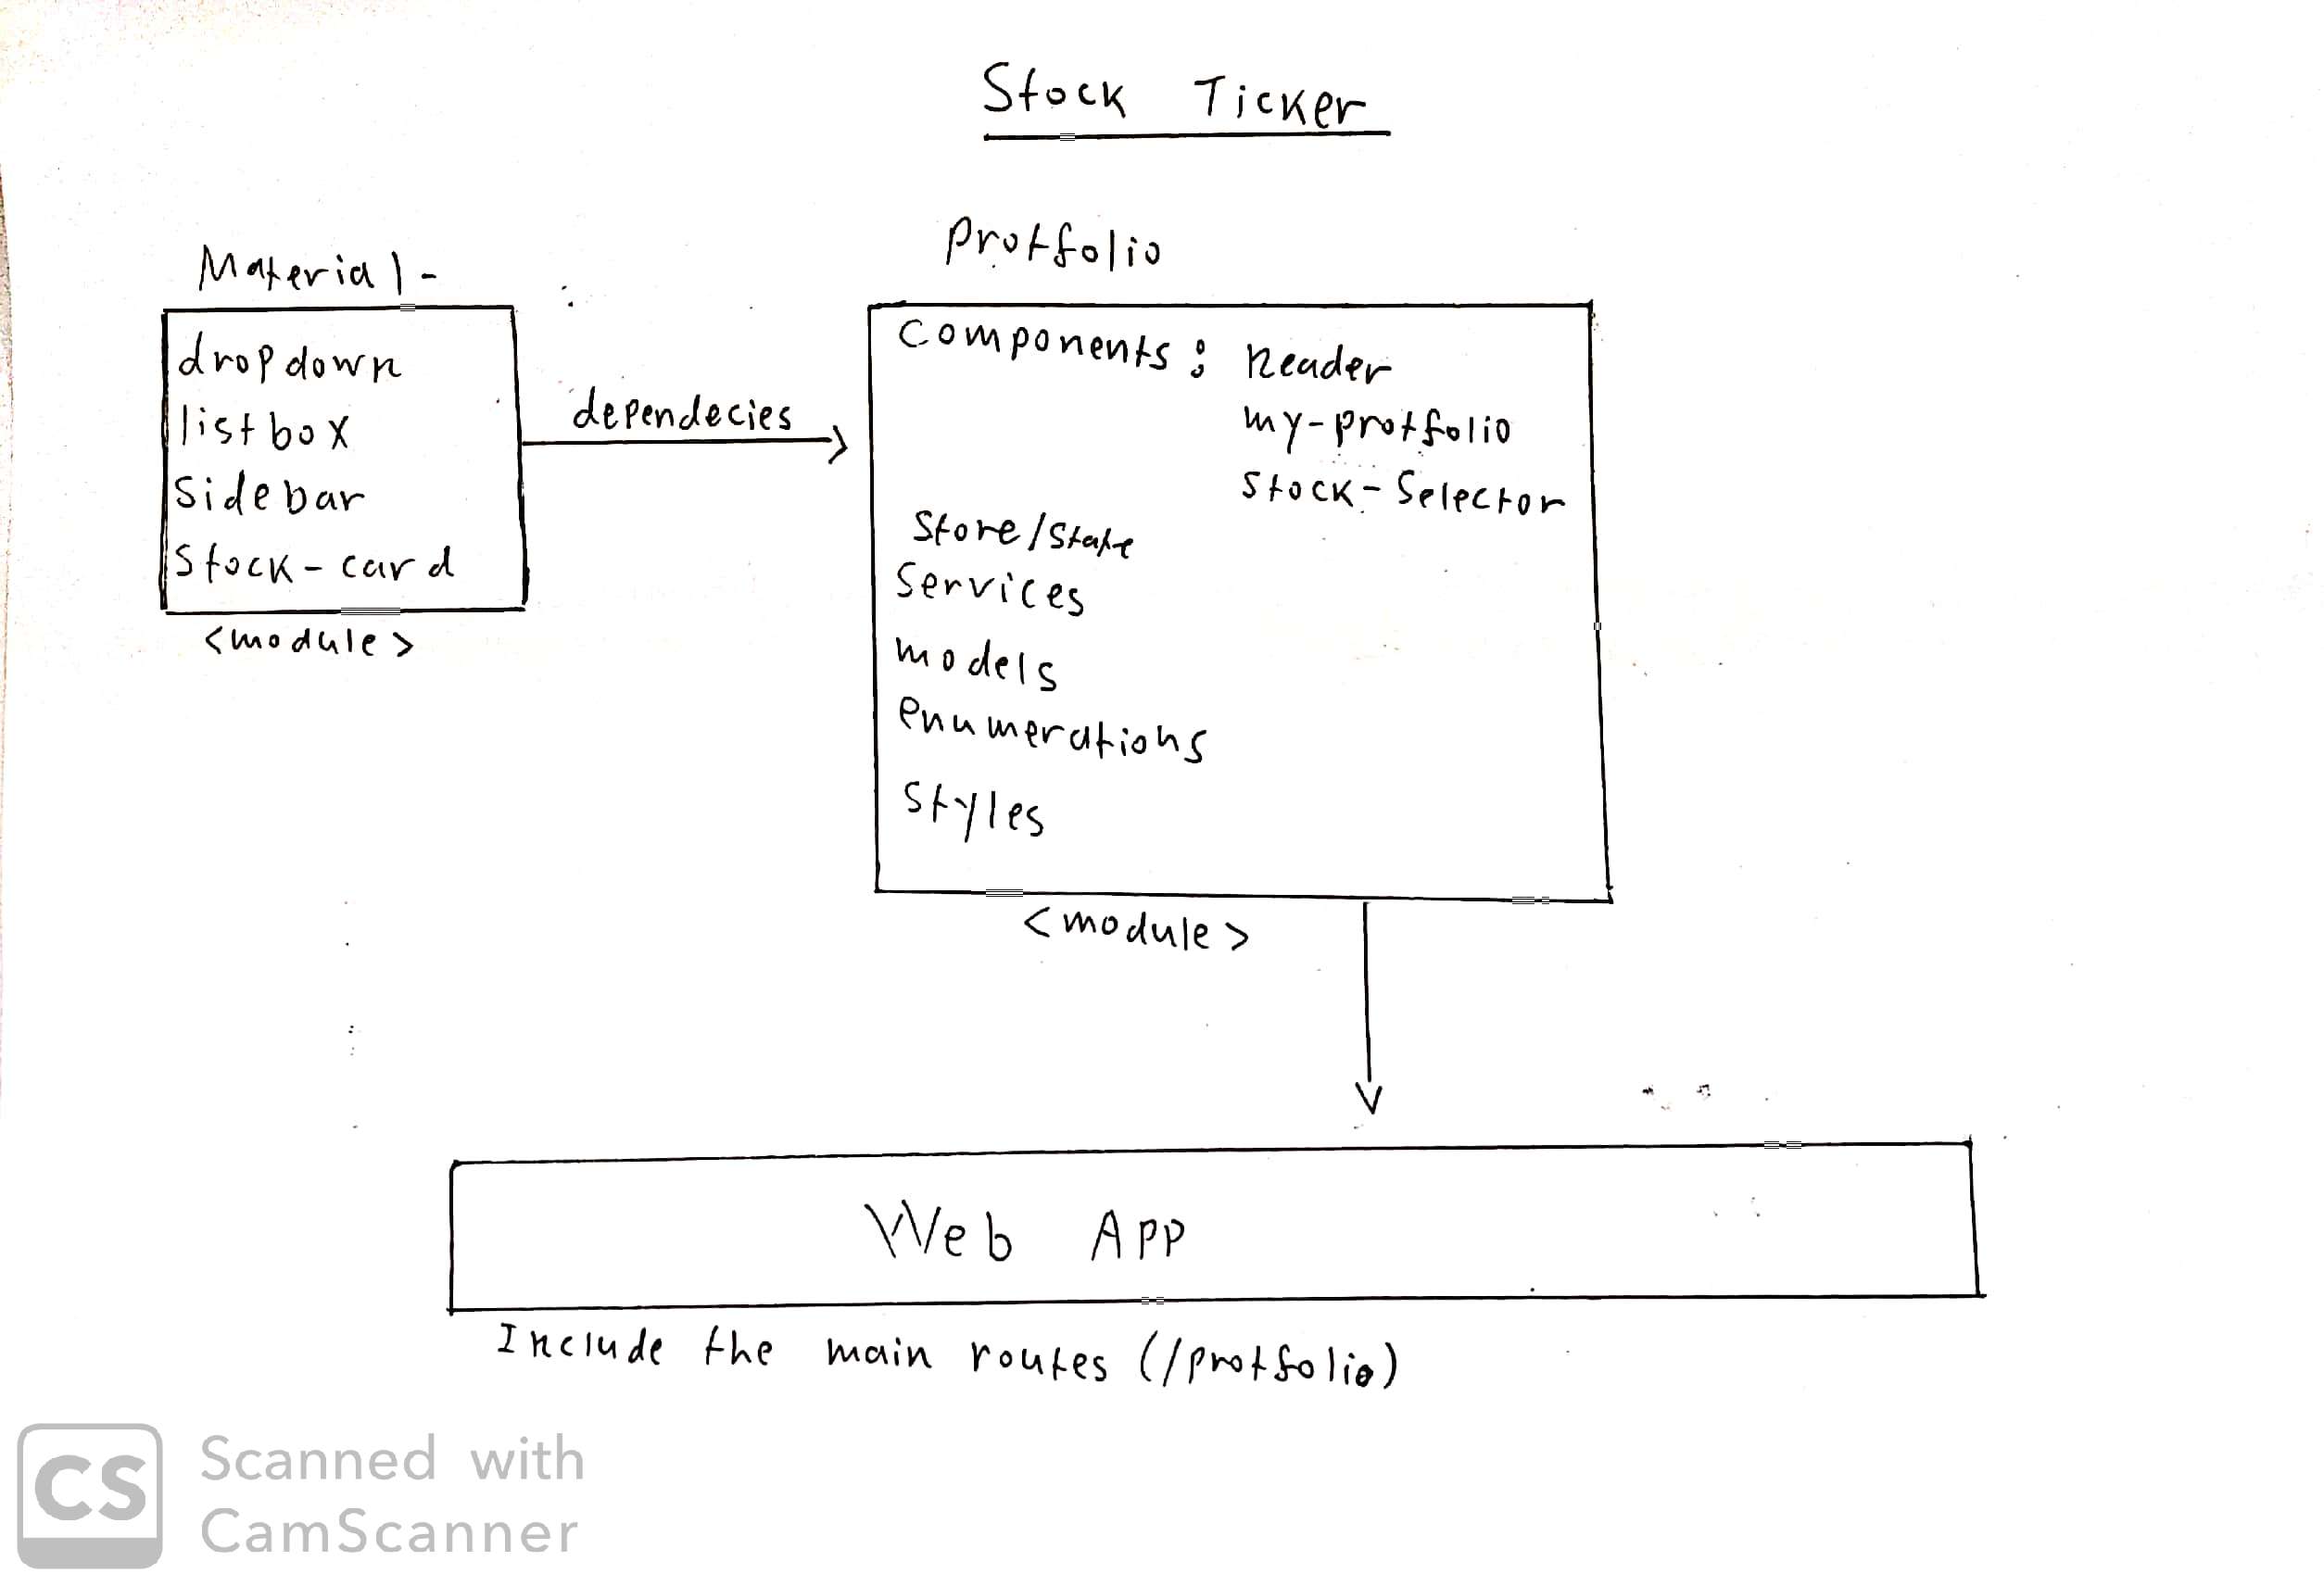 Stock Ticker
Material-
dropdown
listbox
Sidebar
Stock-card
<module>
dependecies
Protfolio
Components: header
my-protfolio
Stock-Selector
Store/State
Services
models
enumerations
Styles
<module>
Web App
Include the main routes (/protfolio)
CS
Scanned with
CamScanner